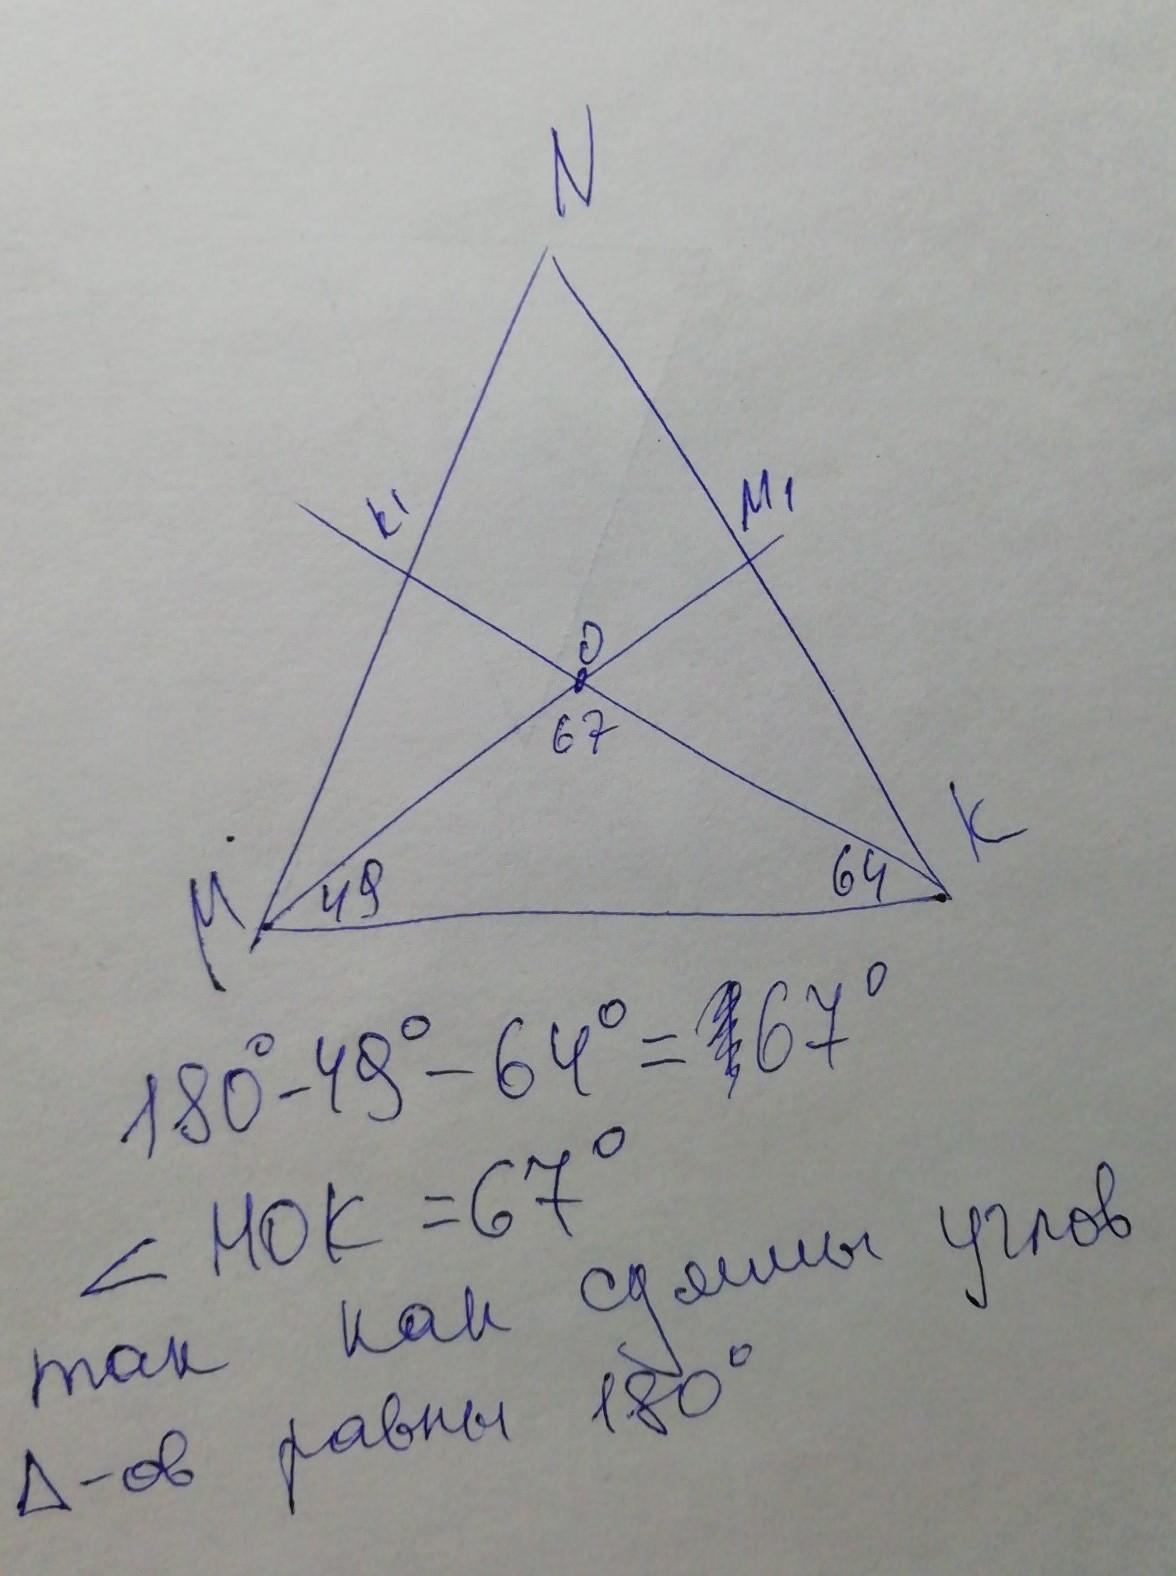 N
K1
M1
O
67
K
M
49
64
180° - 49° - 64° = 67°
∠ MOK = 67°
так как суммы углов
Δ-ов равны 180°